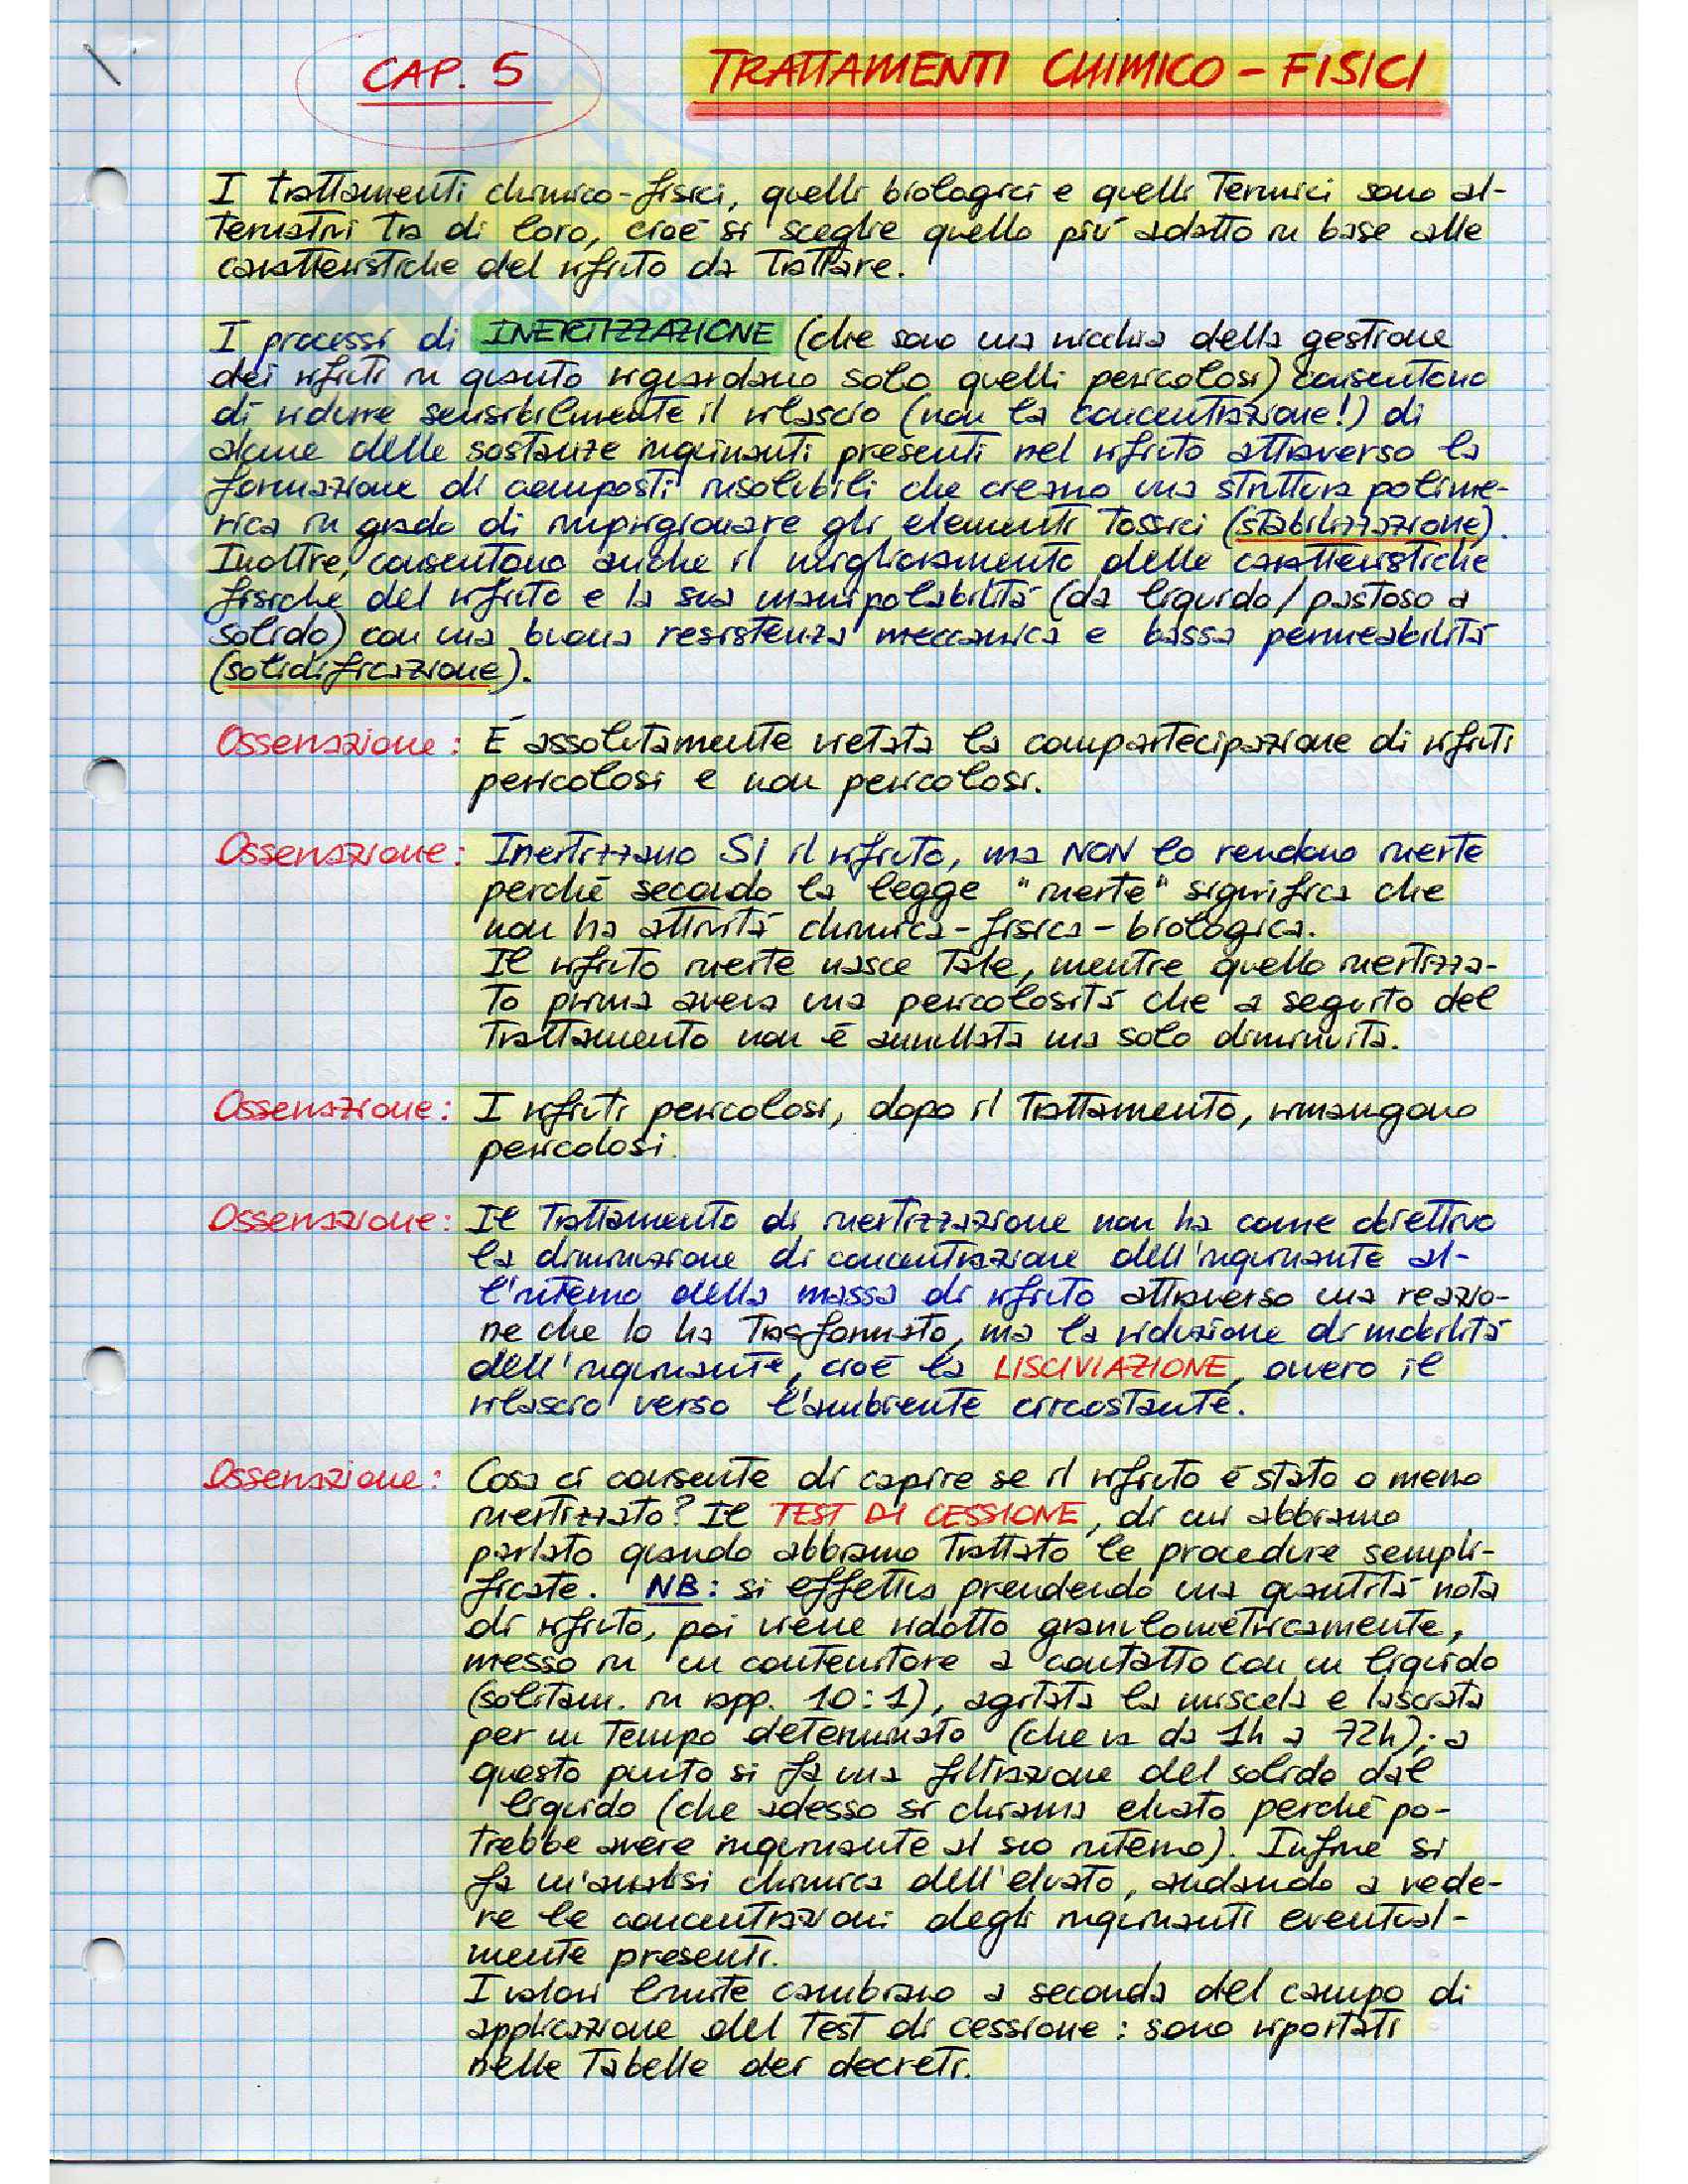 CAP. 5 TRATTAMENTI CHIMICO-FISICI
I trattamenti chimico-fisici, quelli biologici e quelli termici sono al-
ternativi tra di loro, cioè si sceglie quello più adatto in base alle
caratteristiche del rifiuto da trattare.
I processi di INERTIZZAZIONE (che sono una nicchia della gestione
dei rifiuti in quanto riguardano solo quelli pericolosi) consentono
di ridurre sensibilmente il rilascio (non la concentrazione!) di
alcune delle sostanze inquinanti presenti nel rifiuto attraverso la
formazione di composti insolubili che creano una struttura polime-
rica in grado di imprigionare gli elementi tossici (stabilizzazione).
Inoltre, consentono anche il miglioramento delle caratteristiche
fisiche del rifiuto e la sua manipolabilità (da liquido/pastoso a
solido) con una buona resistenza meccanica e bassa permeabilità
(solidificazione).
Osservazione: È assolutamente vietata la compartecipazione di rifiuti
pericolosi e non pericolosi.
Osservazione: Inertizzano SI il rifiuto, ma NON lo rendono inerte
perchè secondo la legge "inerte" significa che
non ha attività chimica-fisica-biologica.
Il rifiuto inerte nasce tale, mentre quello inertizza-
to prima aveva una pericolosità che a seguito del
trattamento non è annullata ma solo diminuita.
Osservazione: I rifiuti pericolosi, dopo il trattamento, rimangono
pericolosi.
Osservazione: Il trattamento di inertizzazione non ha come obiettivo
la diminuzione di concentrazione dell'inquinante al-
l'interno della massa di rifiuto attraverso una reazio-
ne che lo ha trasformato, ma la riduzione di mobilità
dell'inquinante, cioè la LISCIVIAZIONE, ovvero il
rilascio verso l'ambiente circostante.
Osservazione: Cosa ci consente di capire se il rifiuto è stato o meno
inertizzato? Il TEST DI CESSIONE, di cui abbiamo
parlato quando abbiamo trattato le procedure sempli-
ficate. NB: si effettua prendendo una quantità nota
di rifiuto, poi viene ridotto granulometricamente,
messo in un contenitore a contatto con un liquido
(solitam. in rapp. 10:1), agitata la miscela e lasciata
per un tempo determinato (che va da 1h a 72h); a
questo punto si fa una filtrazione del solido dal
liquido (che adesso si chiama eluato perchè po-
trebbe avere inquinante al suo interno). Infine si
fa un'analisi chimica dell'eluato, andando a vede-
re le concentrazioni degli inquinanti eventual-
mente presenti.
I valori limite cambiano a seconda del campo di
applicazione del test di cessione: sono riportati
nelle tabelle dei decreti.